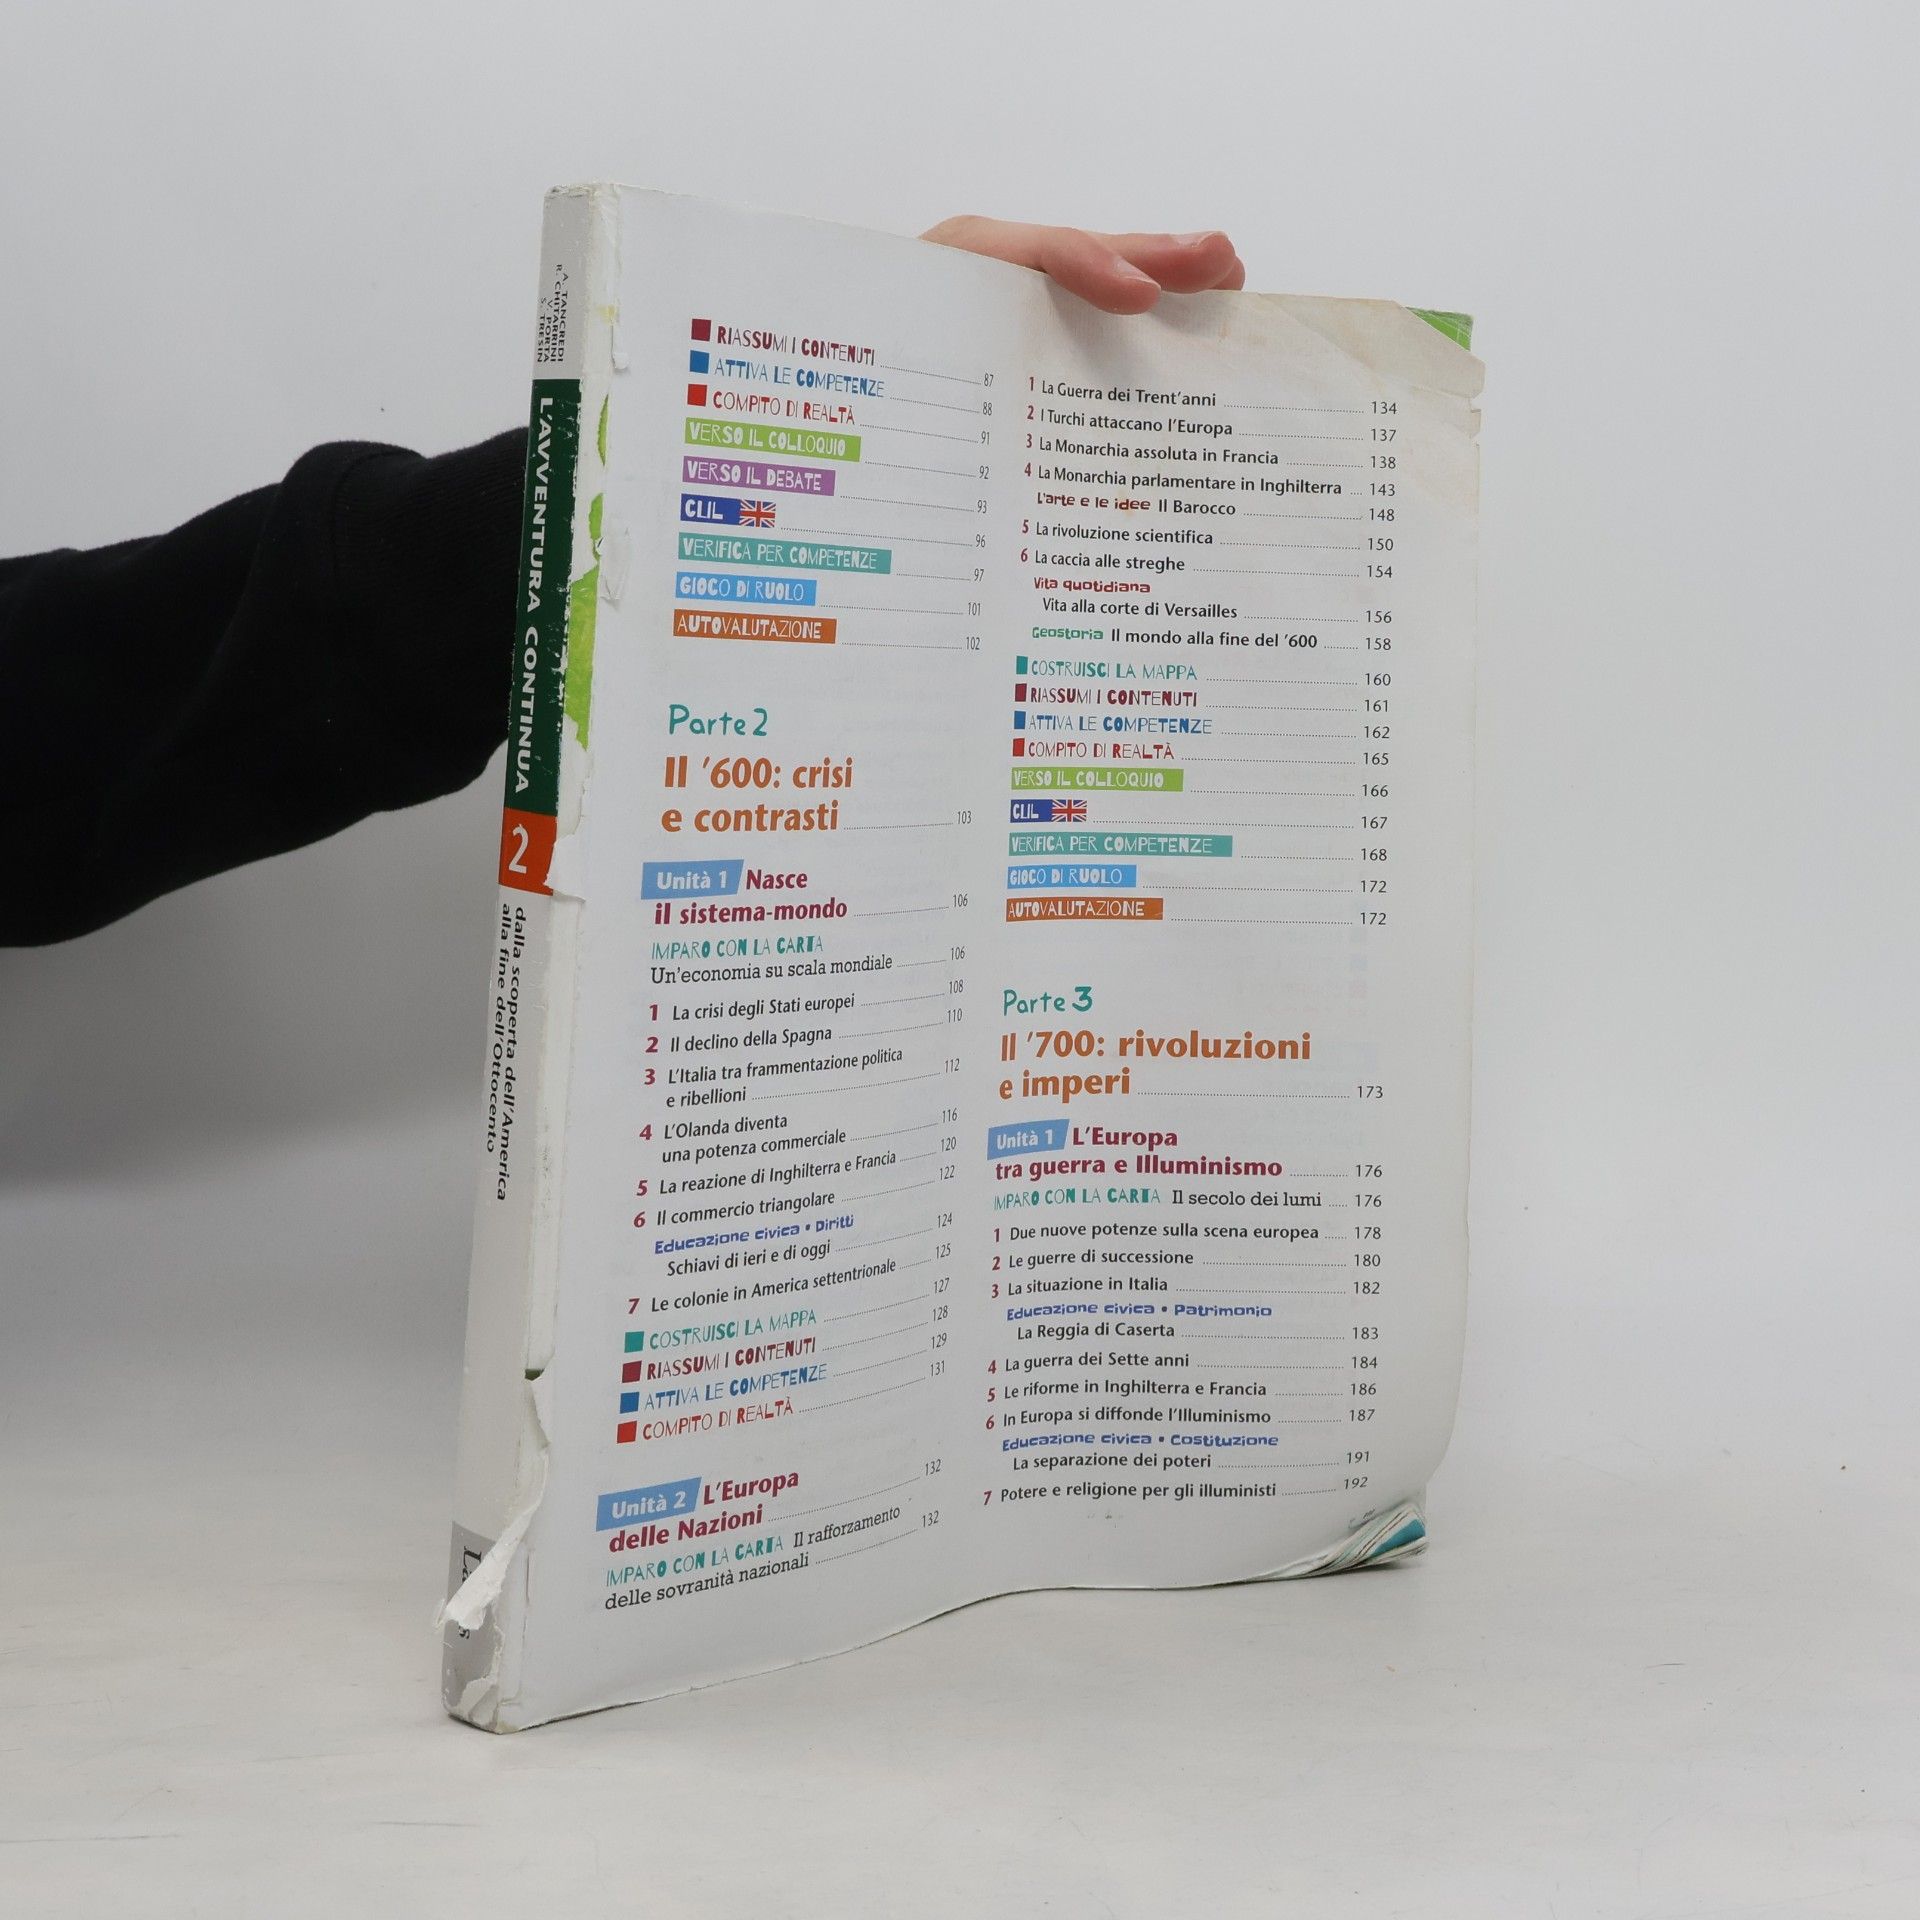 A. TANCREDI
R. CHITARRINI
V. PORTA
S. TRESIN
L'AVVENTURA CONTINUA
2
dalla scoperta dell'America
alla fine dell'Ottocento
RIASSUMI I CONTENUTI 87
ATTIVA LE COMPETENZE 88
COMPITO DI REALTÀ 91
VERSO IL COLLOQUIO 92
VERSO IL DEBATE 93
CLIL 96
VERIFICA PER COMPETENZE 97
GIOCO DI RUOLO 101
AUTOVALUTAZIONE 102
Parte 2
Il '600: crisi
e contrasti 103
Unità 1 Nasce
il sistema-mondo 106
IMPARO CON LA CARTA
Un'economia su scala mondiale 106
1 La crisi degli Stati europei 108
2 Il declino della Spagna 110
3 L'Italia tra frammentazione politica
e ribellioni 112
4 L'Olanda diventa
una potenza commerciale 116
5 La reazione di Inghilterra e Francia 120
6 Il commercio triangolare 122
Educazione civica • Diritti
Schiavi di ieri e di oggi 124
7 Le colonie in America settentrionale 125
COSTRUISCI LA MAPPA 127
RIASSUMI I CONTENUTI 128
ATTIVA LE COMPETENZE 129
COMPITO DI REALTÀ 131
Unità 2 L'Europa
delle Nazioni 132
IMPARO CON LA CARTA Il rafforzamento
delle sovranità nazionali 132
1 La Guerra dei Trent'anni 134
2 I Turchi attaccano l'Europa 137
3 La Monarchia assoluta in Francia 138
4 La Monarchia parlamentare in Inghilterra 143
L'arte e le idee Il Barocco 148
5 La rivoluzione scientifica 150
6 La caccia alle streghe 154
Vita quotidiana
Vita alla corte di Versailles 156
Geostoria Il mondo alla fine del '600 158
COSTRUISCI LA MAPPA 160
RIASSUMI I CONTENUTI 161
ATTIVA LE COMPETENZE 162
COMPITO DI REALTÀ 165
VERSO IL COLLOQUIO 166
CLIL 167
VERIFICA PER COMPETENZE 168
GIOCO DI RUOLO 172
AUTOVALUTAZIONE 172
Parte 3
Il '700: rivoluzioni
e imperi 173
Unità 1 L'Europa
tra guerra e Illuminismo 176
IMPARO CON LA CARTA Il secolo dei lumi 176
1 Due nuove potenze sulla scena europea 178
2 Le guerre di successione 180
3 La situazione in Italia 182
Educazione civica • Patrimonio
La Reggia di Caserta 183
4 La guerra dei Sette anni 184
5 Le riforme in Inghilterra e Francia 186
6 In Europa si diffonde l'Illuminismo 187
Educazione civica • Costituzione
La separazione dei poteri 191
7 Potere e religione per gli illuministi 192